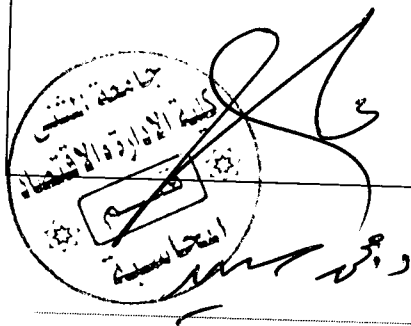 جامعة المثنى
كلية الادارة والاقتصاد
قسم
المحاسبة